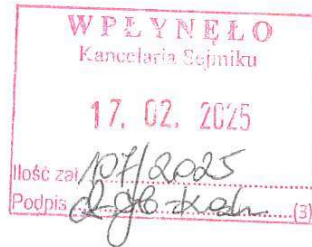 WPŁYNĘŁO
Kancelaria Sejmiku
17. 02. 2025
Ilość zał. 107/2025
Podpis (3)